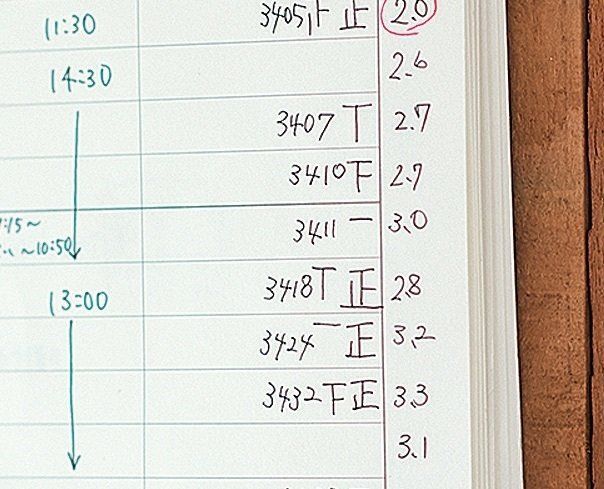 11:30 3405 下 正 2.0
14:30 2.6
3407 T 2.7
3410 下 2.7
3411 一 3.0
:15~
~10:50
13:00 3418 T 正 2.8
3424 一 正 3.2
3432 下 正 3.3
3.1